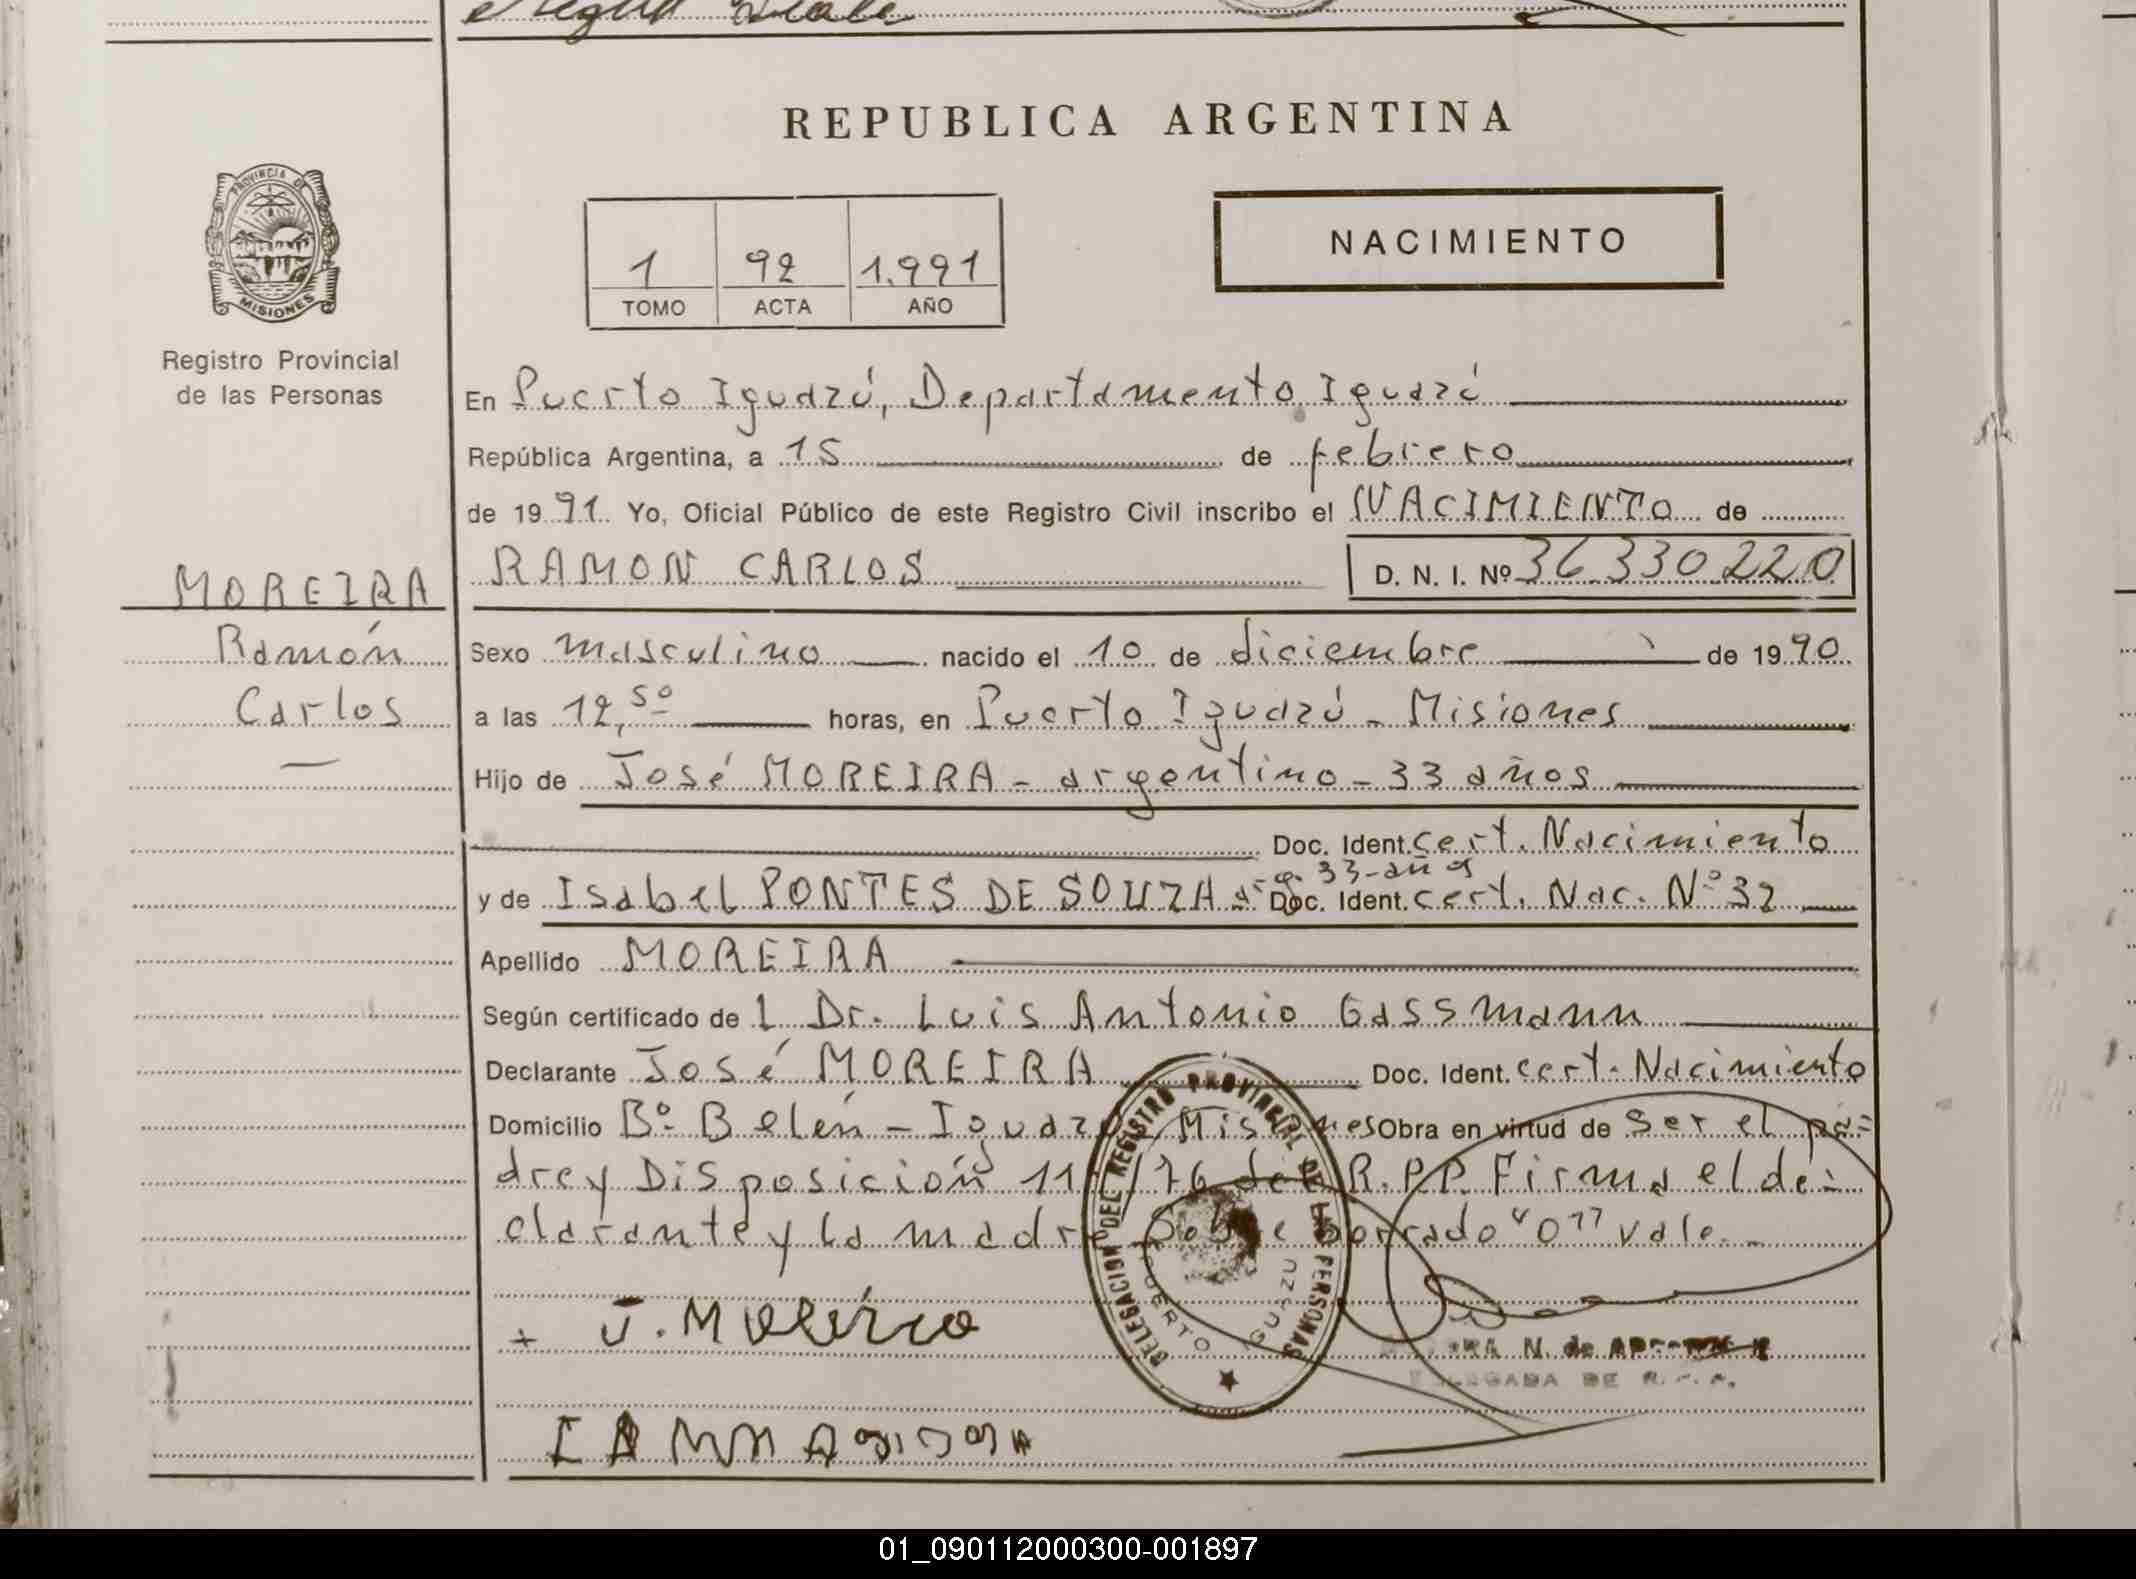 REPUBLICA ARGENTINA
PROVINCIA DE
MISIONES
Registro Provincial
de las Personas
1 92 1.991
TOMO ACTA AÑO
NACIMIENTO
En Puerto Iguazú, Departamento Iguazú
República Argentina, a 15 de febrero
de 1991 Yo, Oficial Público de este Registro Civil inscribo el NACIMIENTO de
MOREIRA
Ramón
Carlos
RAMON CARLOS D. N. I. Nº 36 330 220
Sexo masculino nacido el 10 de diciembre de 1990
a las 12,50 horas, en Puerto Iguazú - Misiones
Hijo de José MOREIRA - argentino - 33 años
Doc. Ident. cert. Nacimiento
y de Isabel PONTES DE SOUZA arg. 33-años Doc. Ident. cert. Nac. Nº 32
Apellido MOREIRA
Según certificado de l Dr. Luis Antonio Gassmann
Declarante José MOREIRA Doc. Ident. cert. Nacimiento
Domicilio Bº Belén - Iguazú Misiones Obra en virtud de ser el pa=
dre y Disposición 11 /76 del R.P.P. Firma el de=
clarante y la madre Sobre borrado "0" vale.-
DELEGACION DEL REGISTRO PROVINCIAL DE LAS PERSONAS
PUERTO IGUAZU
+ J. Moreira
N. de
DELEGADA DE R.P.P.
01_090112000300-001897